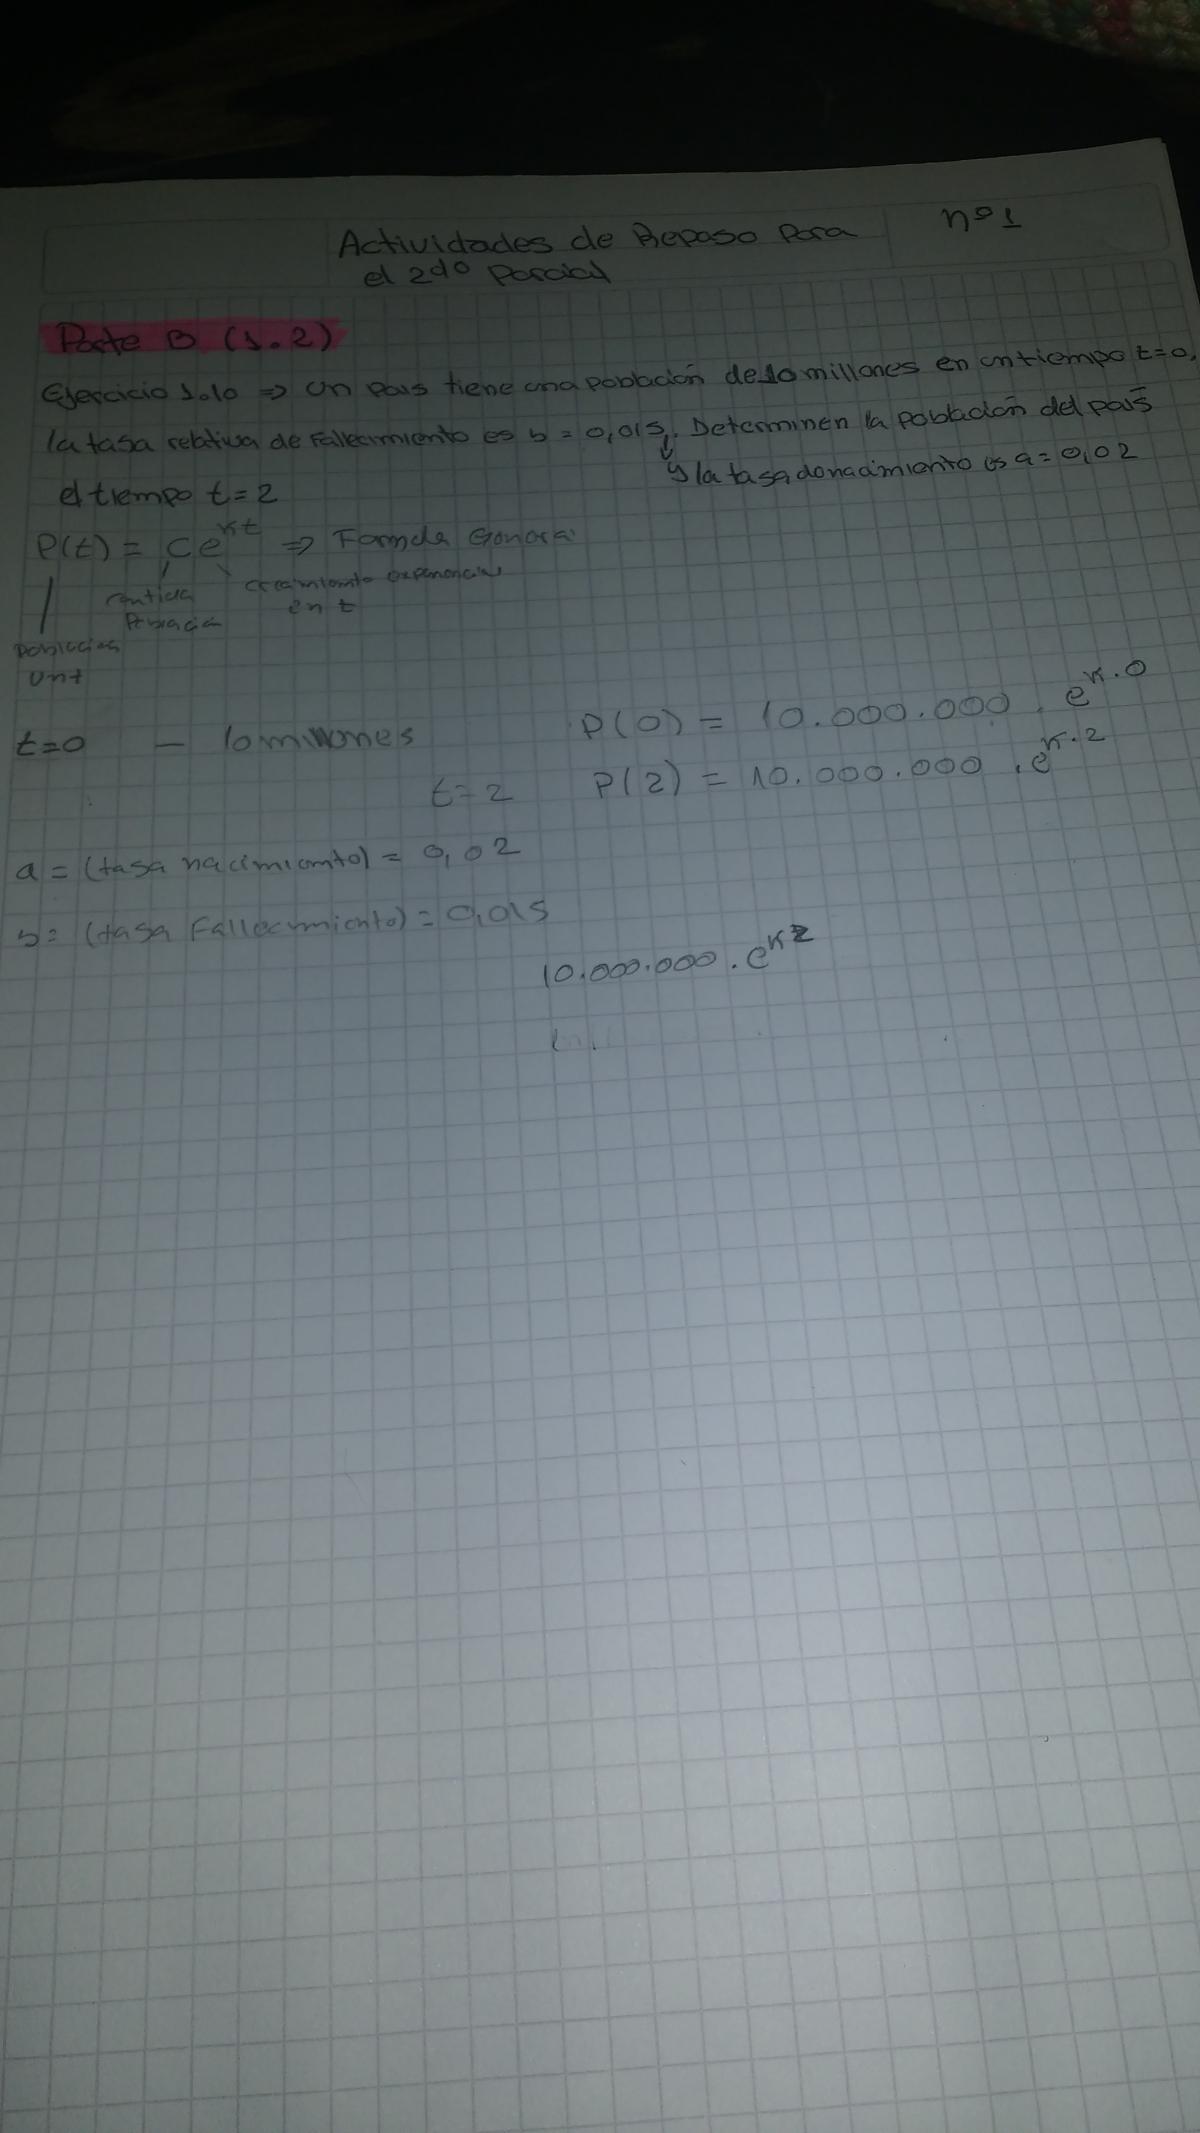 Actividades de Repaso para
el 2do Parcial
nº 1
Parte B (1.2)
Ejercicio 1.10 => Un pais tiene una población de 10 millones en un tiempo t=0,
la tasa relativa de fallecimiento es b = 0,015. Determinen la población del país
y la tasa de nacimiento es a = 0,02
el tiempo t=2
P(t) = Ce^kt => Formula General
crecimiento exponencial
en t
Población
Población
t=0 – 10 millones P(0) = 10.000.000 . e^k.0
t=2 P(2) = 10.000.000 . e^k.2
a = (tasa nacimiento) = 0,02
b = (tasa Fallecimiento) = 0,015
10.000.000 . e^k2